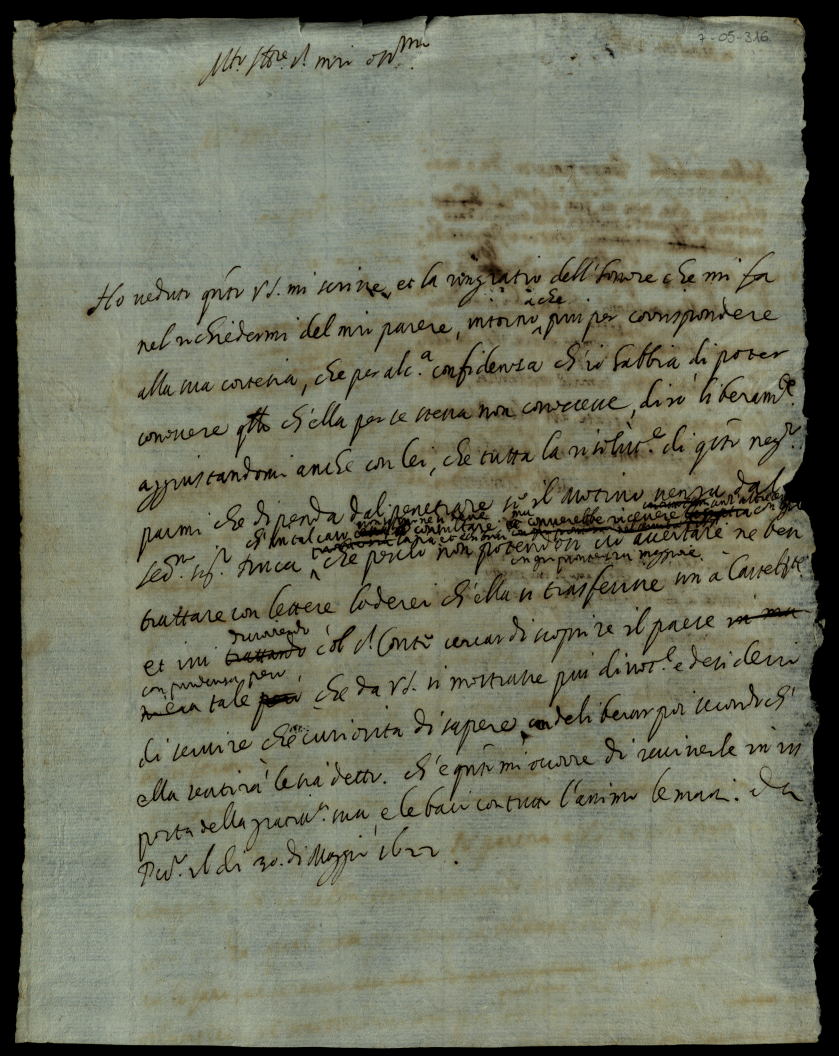 7-05-316
Ill.re Sig.re il mio oss.mo
Ho veduto q.to V.S. mi scrive, et la ringratio dell'honore che mi fa
nel richiedermi del mio parere, intorno a che più per corrispondere
alla sua cortesia, che per alc.a confidenza ch'io habbia di poter
conoscere q.llo ch'ella per se stessa non conoscesse, dirò liberam.te
aggiustandomi anche con lei, che tutta la risolut.e di q.sto neg.o
parmi che dipenda dal penetrare se il motivo venga dal
Ser.mo Sig.r Duca che perciò non potendosi ciò accertare ne ben
trattare con lettere loderei ch'ella si trasferisse un dì à Castelv.o
et ivi discorrendo col S. Conte cercar di scoprire il paese
con prudenza però tale che da V.S. si mostrasse più divot.e e desiderio
di servire che curiosità di sapere, deliberar poi secondo ch'
ella sentirà le sia detto. Ch'è q.to mi occorre di scriverle in ris
posta della gratiss.a sua e le bacio con tutto l'animo le mani. Da
il dì 30. di Maggio 1622.